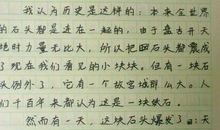 我认为历史是这样的：本来全世界
的石头都是连在一起的，由于盘古开天
绝时力量无比大，所以把四石头都震成
了现在我们看见的小块块。但有一块石
头例外了，它有一个故宫城那么大。人
们千百年来都认为这是一块妖石。
然而有一天，这块石头爆发了。天